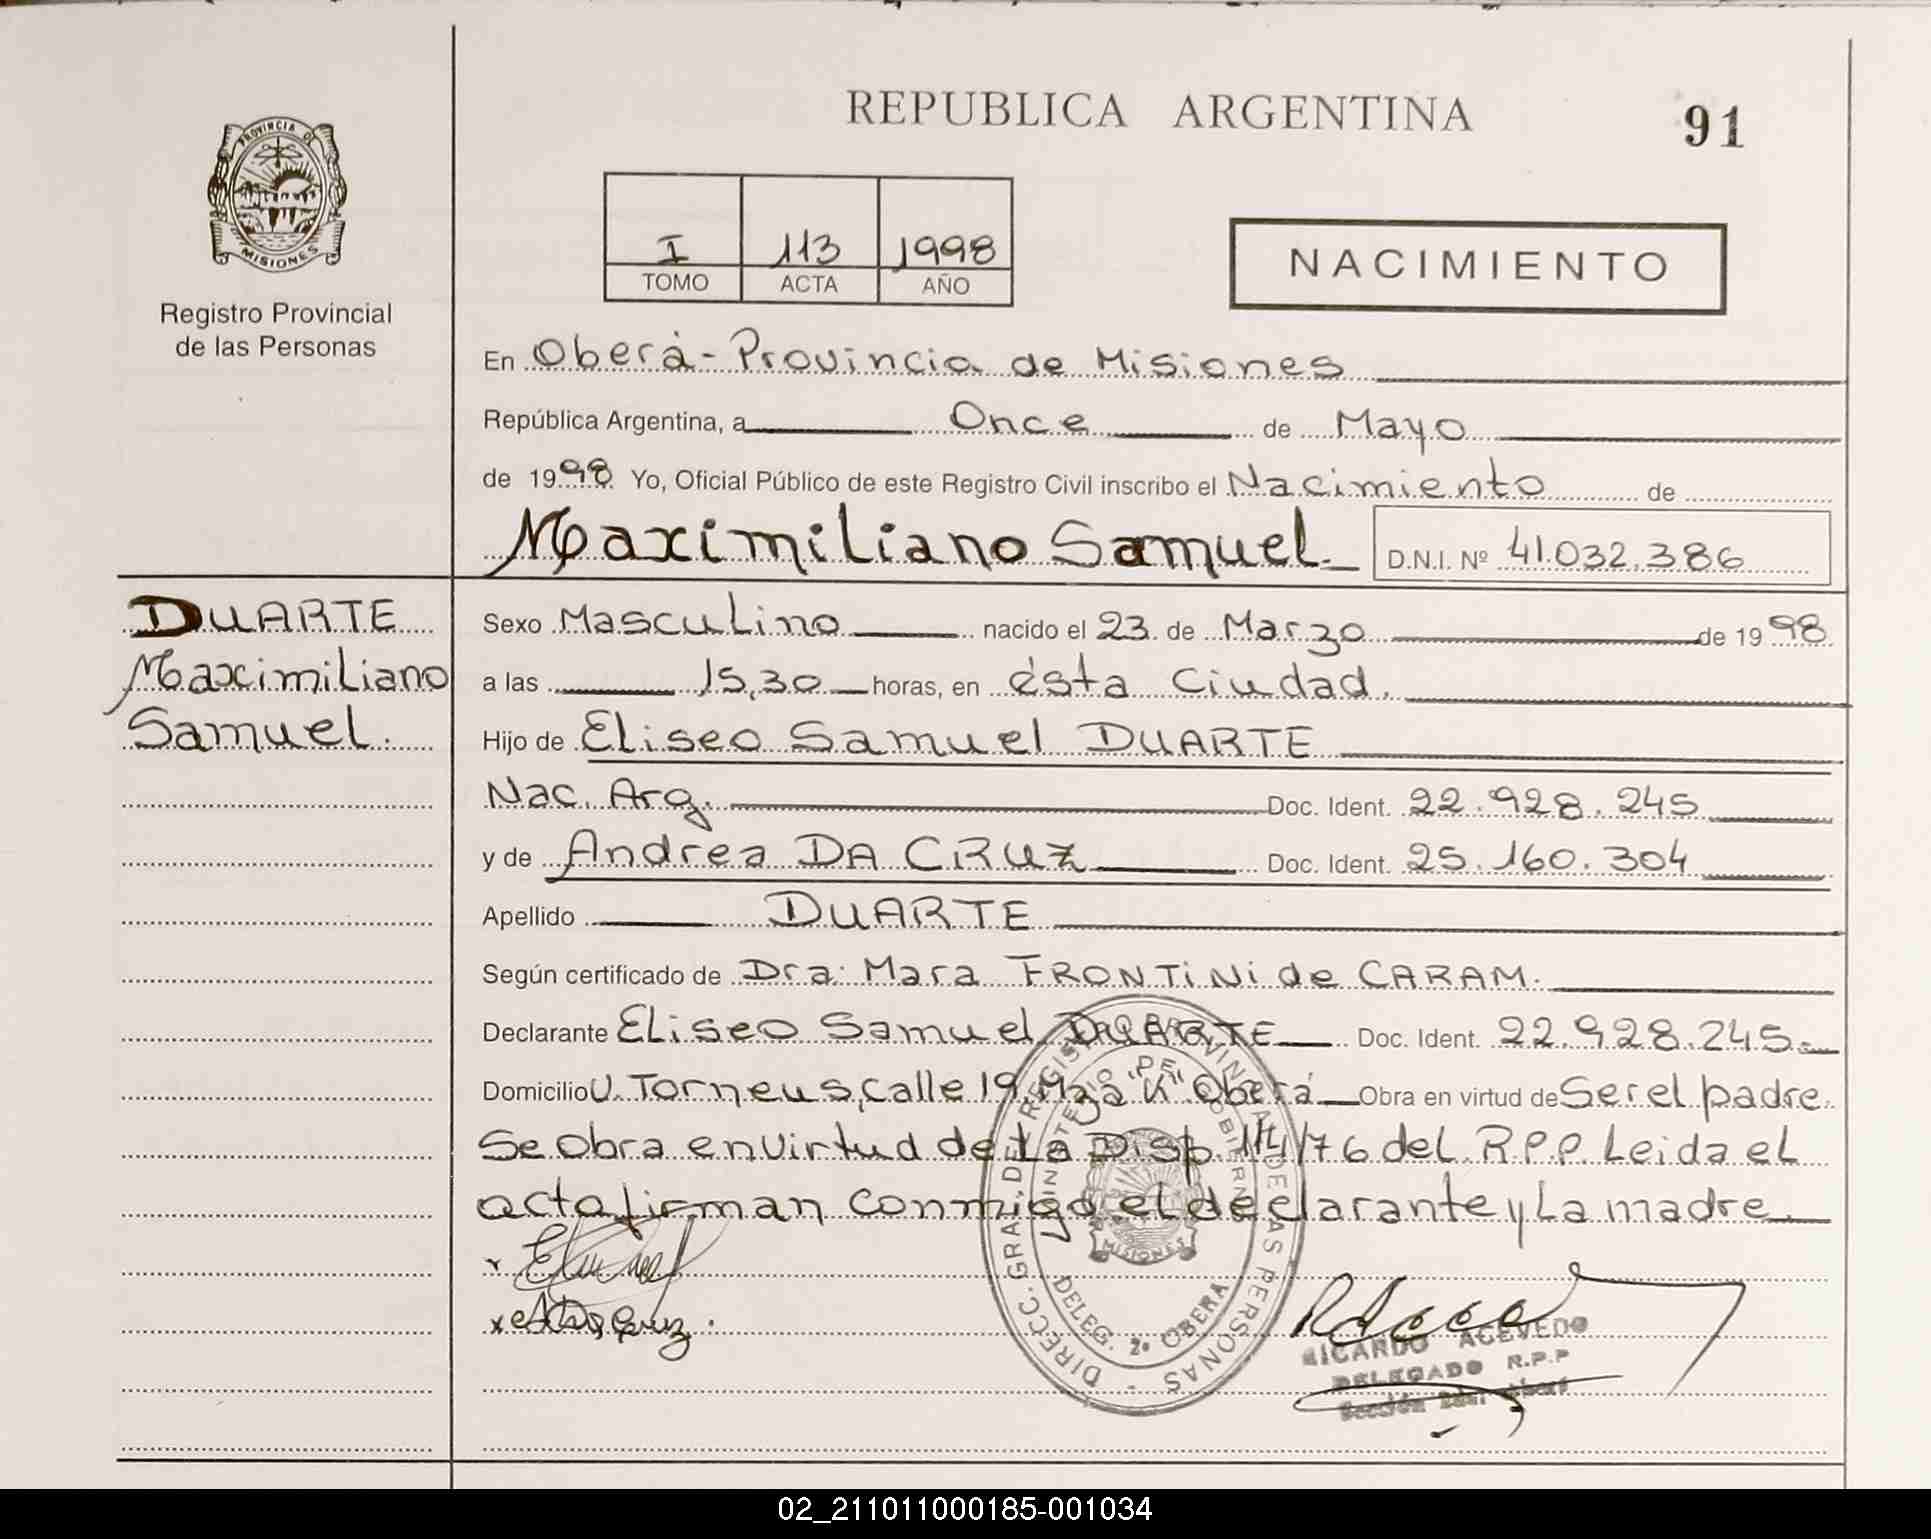 REPUBLICA ARGENTINA
91
PROVINCIA DE
MISIONES
Registro Provincial
de las Personas
I 113 1998
TOMO ACTA AÑO
NACIMIENTO
En Oberá - Provincia de Misiones
República Argentina, a Once de Mayo
de 1998 Yo, Oficial Público de este Registro Civil inscribo el Nacimiento de
Maximiliano Samuel. D.N.I. Nº 41.032.386
DUARTE
Maximiliano
Samuel.
Sexo Masculino nacido el 23 de Marzo de 1998
a las 15,30 horas, en ésta Ciudad.
Hijo de Eliseo Samuel DUARTE
Nac. Arg. Doc. Ident. 22.928.245
y de Andrea DA CRUZ Doc. Ident. 25.160.304
Apellido DUARTE
Según certificado de Dra: Mara FRONTINI de CARAM.
Declarante Eliseo Samuel DUARTE Doc. Ident. 22.928.245.-
Domicilio U. Torneus, Calle 19 Mza "K" Oberá Obra en virtud de Ser el padre.
Se obra en virtud de La Disp. 114/76 del R.P.P. Leida el
acta firman conmigo el declarante y La madre.
DIRECC. GRAL. DE REGISTRO PROVINCIAL DE LAS PERSONAS
MINISTERIO DE GOBIERNO
MISIONES
DELEG. 2ª OBERA
RICARDO ACEVEDO
DELEGADO R.P.P
02_211011000185-001034